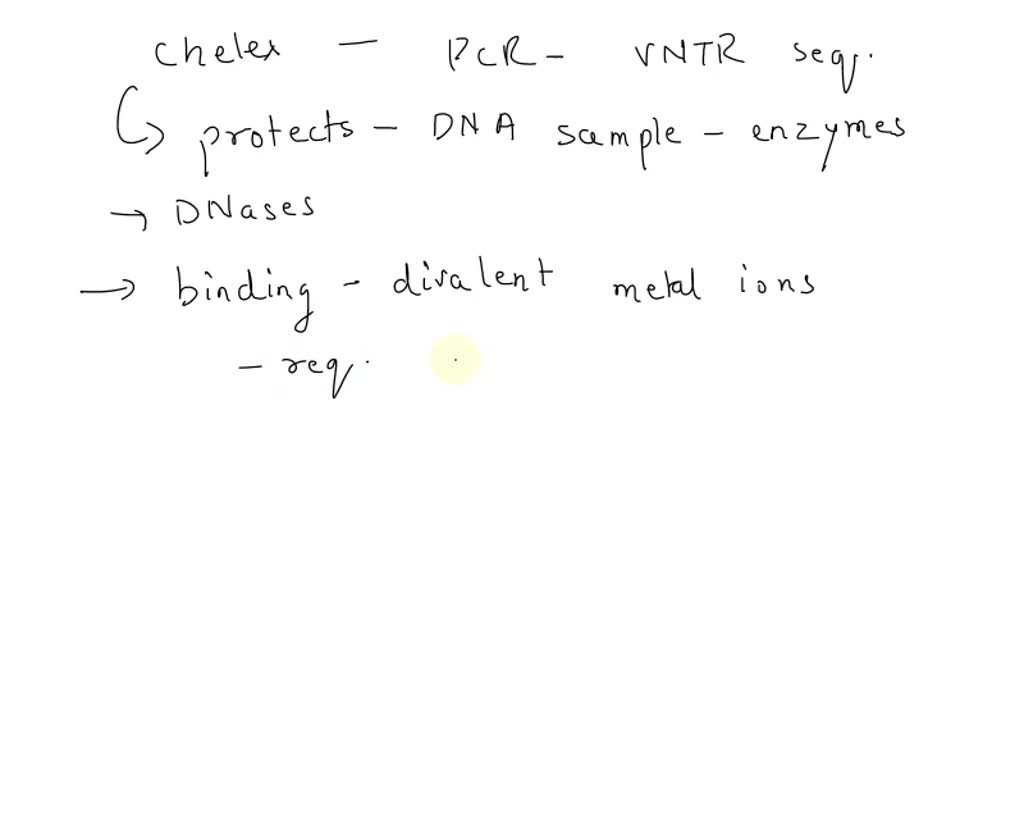 chelex – PCR – VNTR seq.
↳ protects – DNA sample – enzymes
→ DNases
→ binding – divalent metal ions
– req.